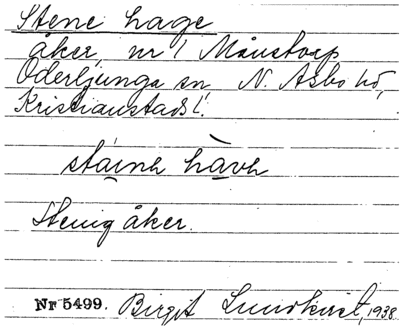 Stene hage
åker nr 1 Månstorp
Oderljunga sn, N. Åsbo hd,
Kristianstads l.
stàinh hàvh
Stenig åker.
Nr 5499. Birgit Lundkvist, 1938